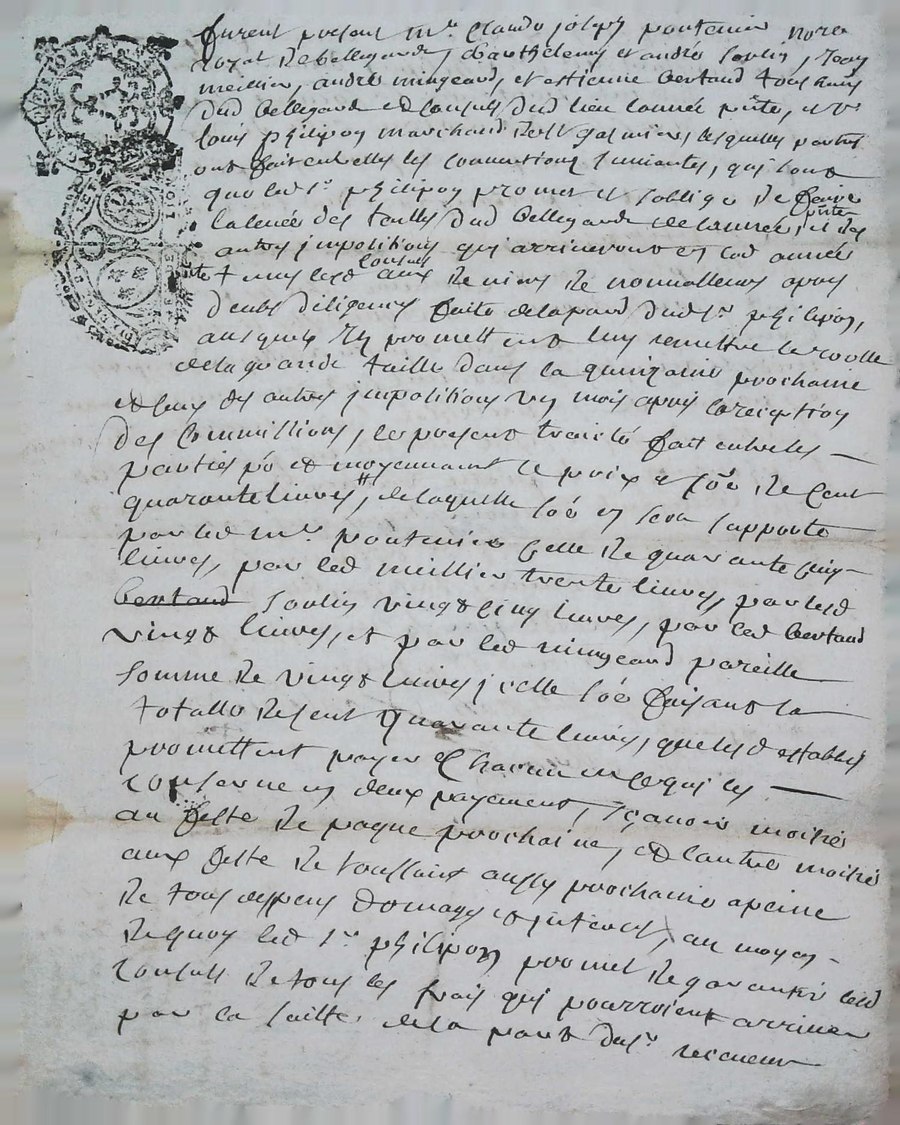 furent present mre Claude joseph pontenier nore
royal de bellegarde, barthelemy et andre soulis, Jean
meillier, andre mingeard, et estienne bertaud tous
dud bellegarde et consuls dud lieu lannée pñte, et sr
louis philipon marchand de st galmier, lesquelles parties
ont fait entrelles les conventions suivantes, qui sont
que led sr philipon promet et soblige de faire
la levée des tailles dud bellegarde de lannée pñte, et des
autres jmpositions qui arriveront en lad année
consuls
deubs diligences faite de la part dud sr philipon,
ausquels Ils promettent luy remettre le roolle
de la grande taille dans la quinzaine prochaine
et ceux des autres jmpositions un mois apres la reception
des Commissions, le present traicté fait entre les
parties po et moyennant le prix et soe de Cent
quarante livres tt, de laquelle soe en sera supporté
par led mre pontenier Celle de quarante cinq
livres, par led meillier trente livres, par led
bertaud soulis vingt cinq livres, par led bertaud
vingt livres, et par led mingeard pareille
somme de vingt livres jcelle soe faisant la
totalle de cent quarante livres, que lesd establis
promettent payer Chacun en ce qui les
conserne en deux payements, sçavoir moitié
au feste de paque prochaine, et lautre moitié
aux feste de toussaint aussy prochaine apeine
de tous despens domages et jnterests, au moyen
de quoy led sr philipon promet de garantir lesd
consuls de tous les frais qui pourroient arriver
par la suitte de la part du sr receveur